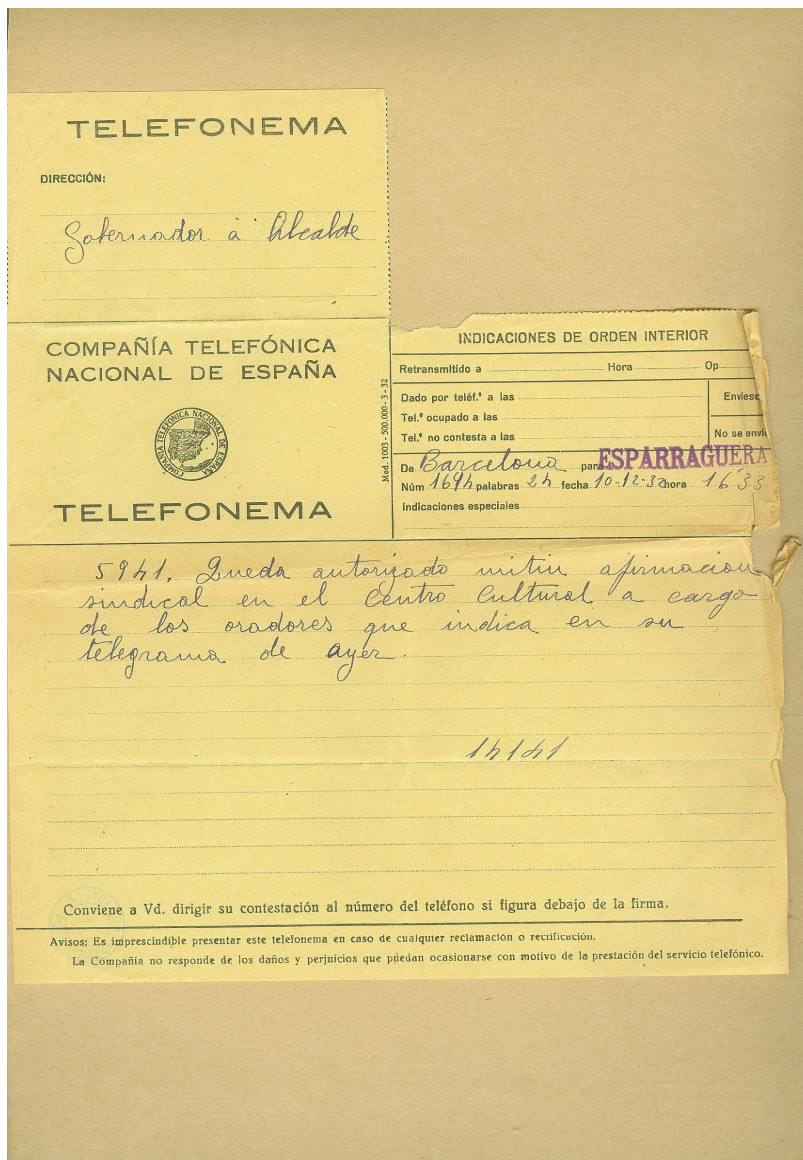 TELEFONEMA
DIRECCIÓN:
Gobernador a Alcalde
COMPAÑÍA TELEFÓNICA
NACIONAL DE ESPAÑA
COMPAÑÍA TELEFÓNICA NACIONAL DE ESPAÑA
TELEFONEMA
Mod. 1003 - 500.000 - 3 - 32
INDICACIONES DE ORDEN INTERIOR
Retransmitido a Hora Op
Dado por teléf.º a las
Tel.º ocupado a las
Tel.º no contesta a las
Enviese
No se envi
De Barcelona para ESPARRAGUERA
Núm 1694 palabras 24 fecha 10-12-32 hora 16'33
Indicaciones especiales
5941. Queda autorizado mitin afirmacion
sindical en el Centro Cultural a cargo
de los oradores que indica en su
telegrama de ayer.
14141
Conviene a Vd. dirigir su contestación al número del teléfono si figura debajo de la firma.
Avisos: Es imprescindible presentar este telefonema en caso de cualquier reclamación o rectificación.
La Compañía no responde de los daños y perjuicios que puedan ocasionarse con motivo de la prestación del servicio telefónico.